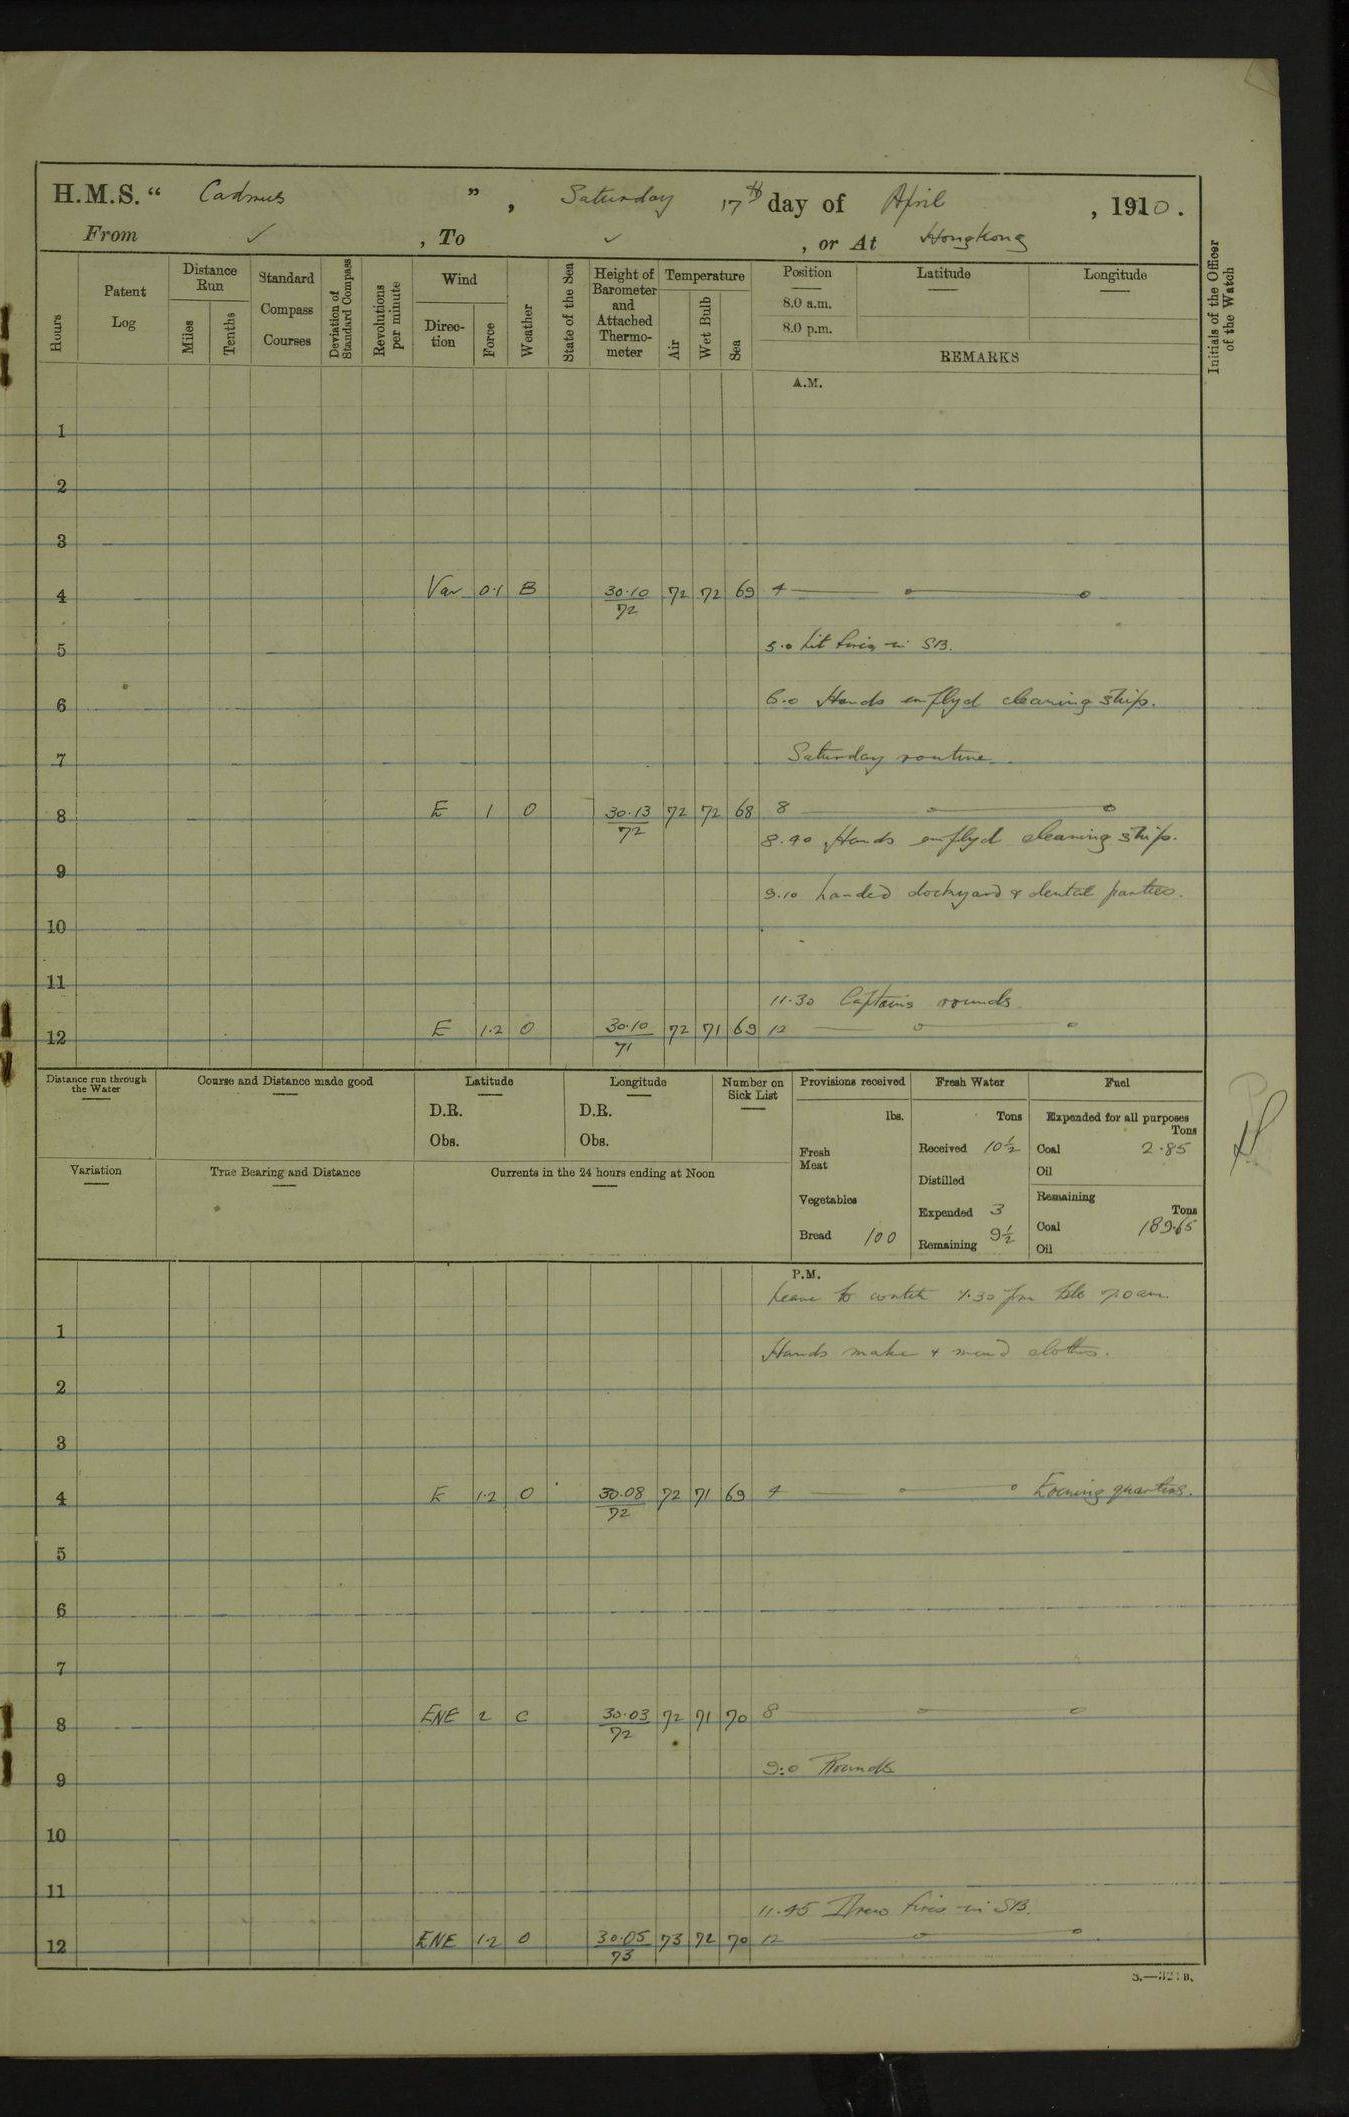 H.M.S. “ Cadmus ”, Saturday 17th day of April, 1910.
From ✓, To ✓, or At Hongkong
Hours
Patent Log
Distance Run
Miles
Tenths
Standard Compass Courses
Deviation of Standard Compass
Revolutions per minute
Wind
Direc-tion
Force
Weather
State of the Sea
Height of Barometer and Attached Thermo-meter
Temperature
Air
Wet Bulb
Sea
Position
Latitude
Longitude
8.0 a.m.
8.0 p.m.
REMARKS
Initials of the Officer of the Watch
A.M.
1
2
3
4 Var 0.1 B 30.10/72 72 72 69 4
5 5.0 Lit fires in SB.
6 6.0 Hands employd cleaning ship.
7 Saturday routine
8 E 1 O 30.13/72 72 72 68 8
8.40 Hands employd cleaning ship.
9 9.10 Landed dockyard & dental parties.
10
11
11.30 Captains rounds
12 E 1.2 O 30.10/71 72 71 69 12
Distance run through the Water
Course and Distance made good
Latitude
D.R.
Obs.
Longitude
D.R.
Obs.
Number on Sick List
Provisions received
lbs.
Fresh Meat
Vegetables
Bread 100
Fresh Water
Tons
Received 10½
Distilled
Expended 3
Remaining 9½
Fuel
Expended for all purposes
Tons
Coal 2.85
Oil
Remaining
Tons
Coal 189.65
Oil
Variation
True Bearing and Distance
Currents in the 24 hours ending at Noon
P.M.
Leave to watch 4.30 pm to 7.0 am.
1 Hands make & mend clothes.
2
3
4 E 1.2 O 30.08/72 72 71 69 4 Evening quarters.
5
6
7
8 ENE 2 C 30.03/72 72 71 70 8
9 9:0 Rounds
10
11
11.45 Drew fires in SB.
12 ENE 1.2 O 30.05/73 73 72 70 12
S.—321B.